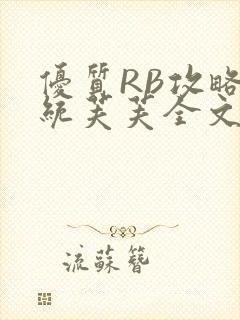 優質RB攻略
統芙芙全文
流蘇簪